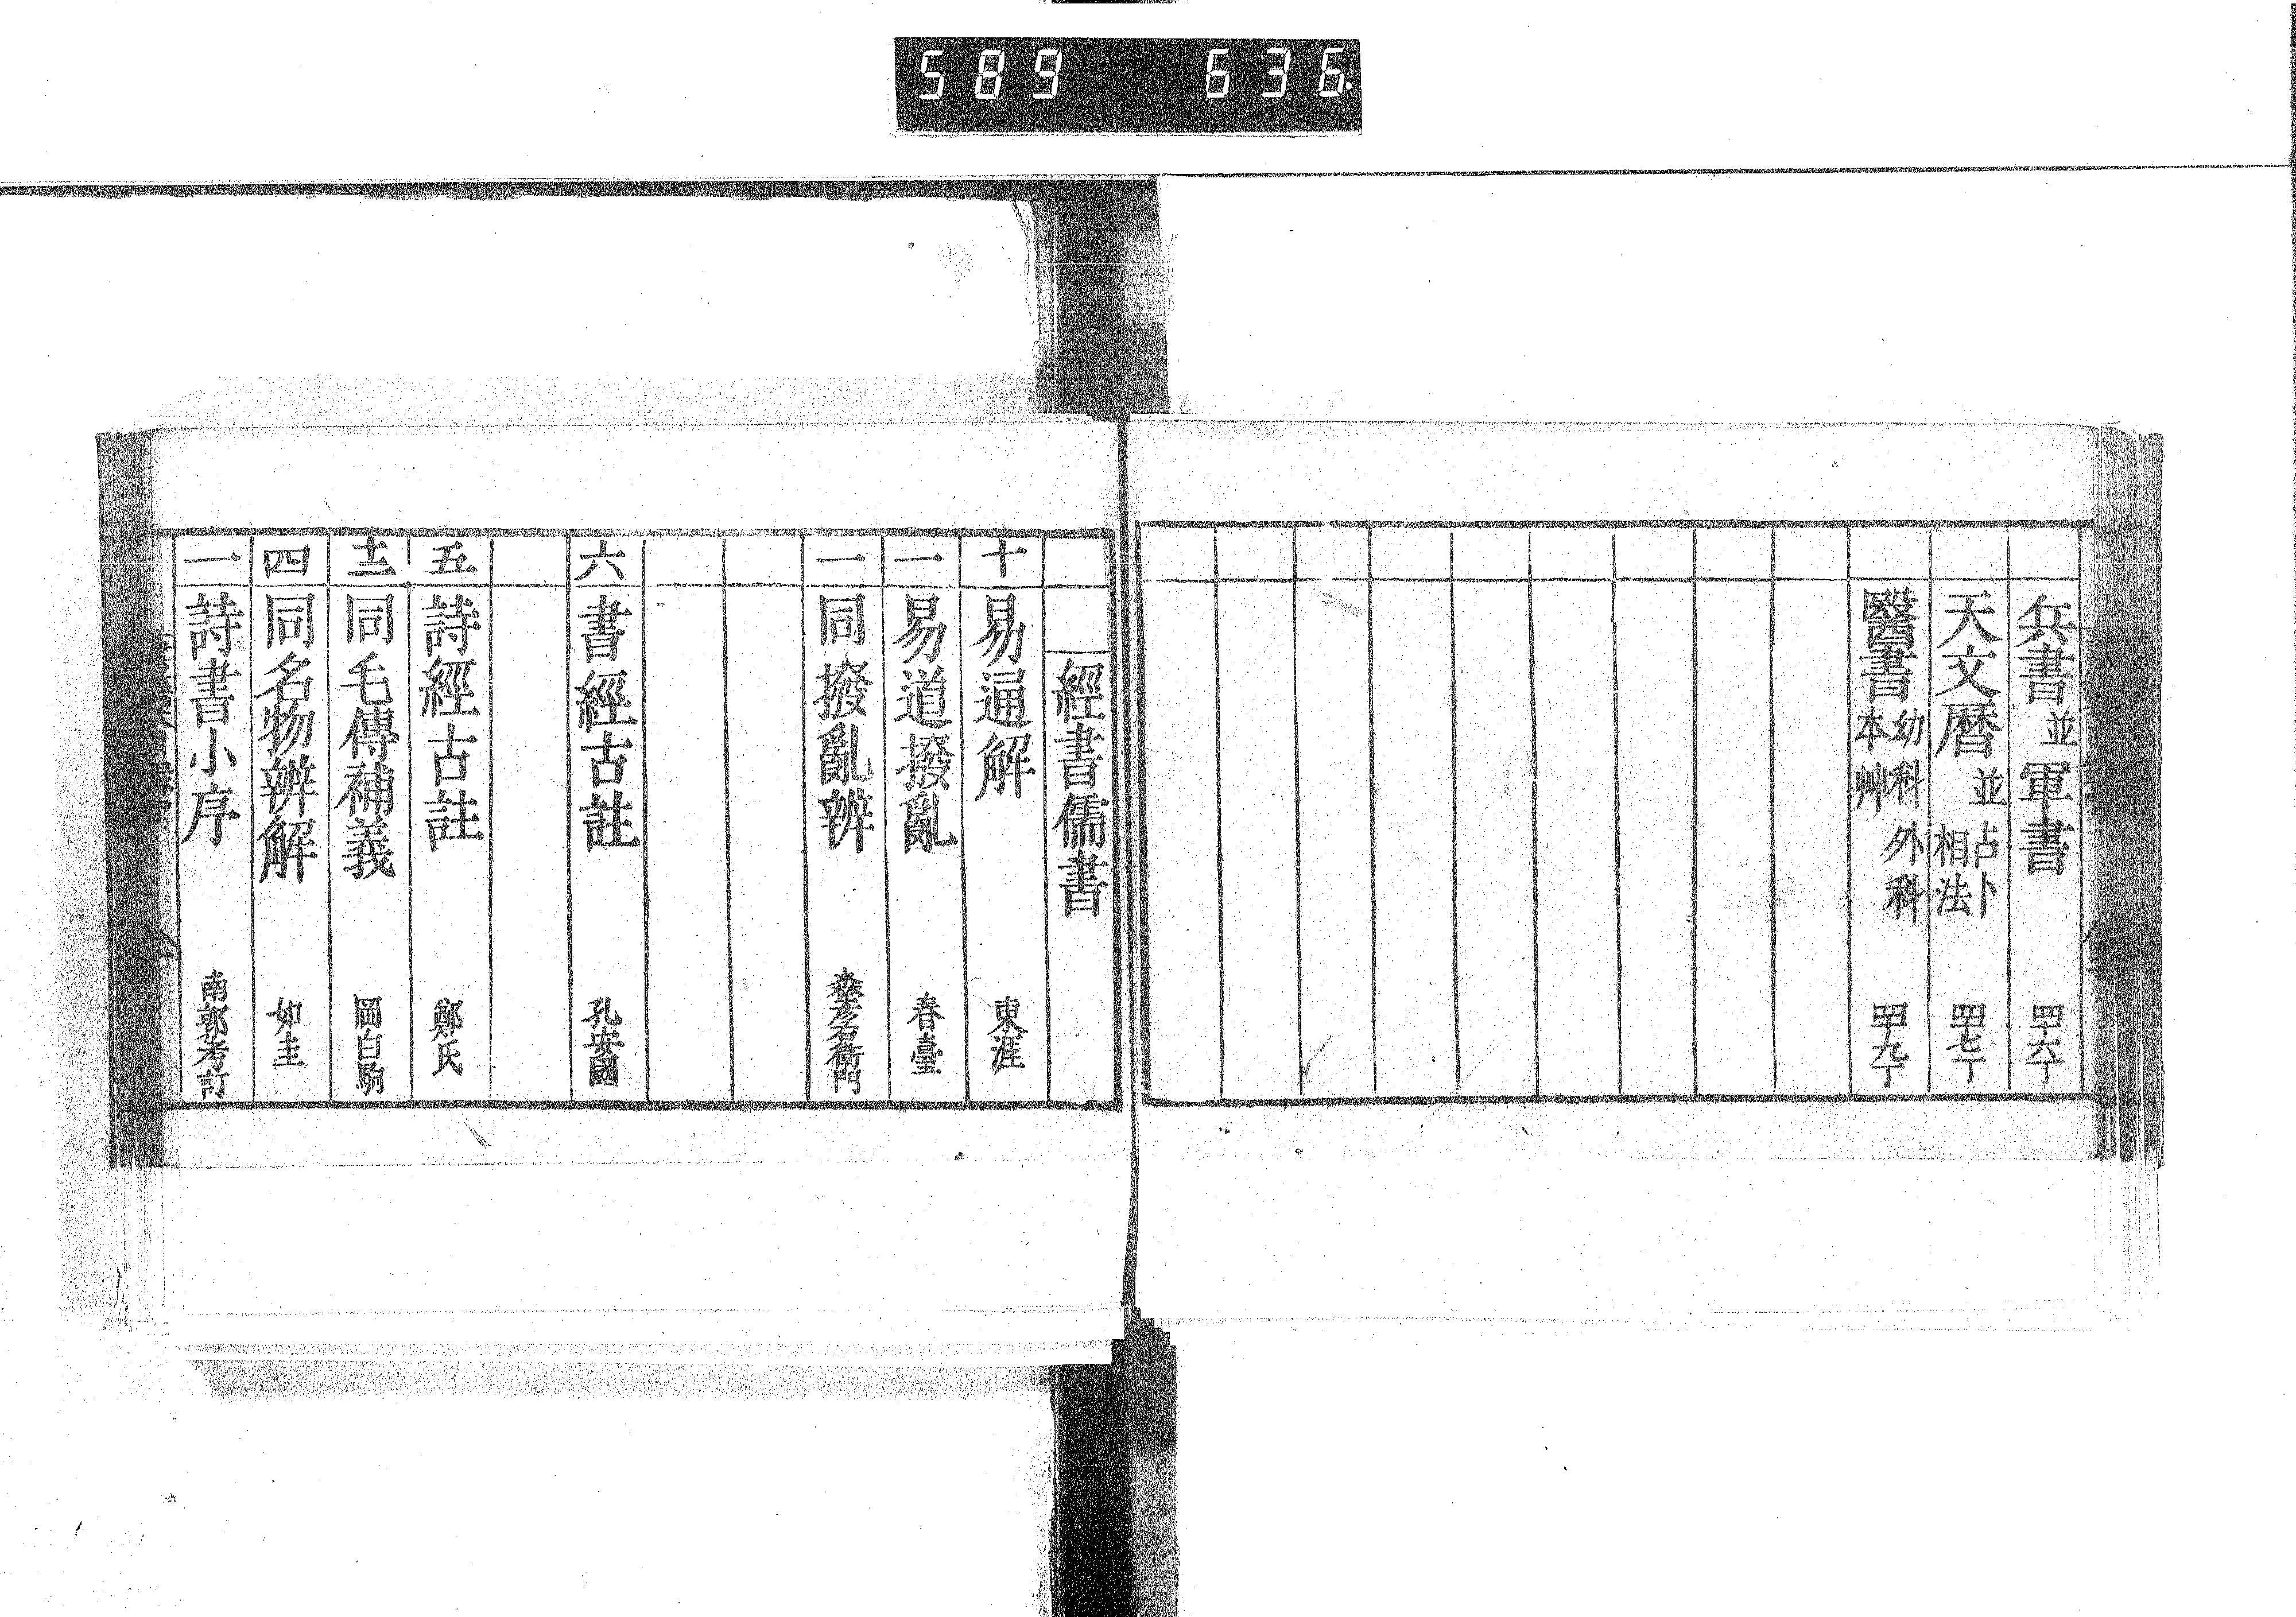 589 636.
兵書並軍書 四十六丁
天文暦並占卜相法 四十七丁
醫書幼科外科本艸 四十九丁
經書儒書
十 易通解 東涯
一 易道撥亂 春臺
一 同撥亂辨 森彦右衛門
六 書經古註 孔安國
五 詩經古註 鄭氏
十二 同毛傳補義 岡白駒
四 同名物辨解 如圭
一 詩書小序 南郭考訂